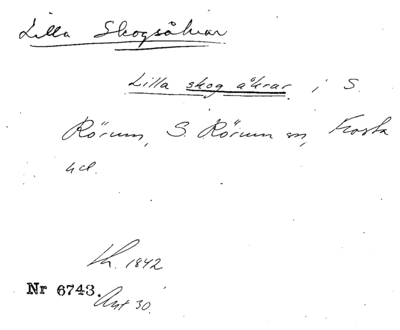 Lilla Skogsåkrar
Lilla skog åkrar i S.
Rörum, S. Rörum sn, Frosta
hd.
Lh. 1842
Nr 6743.
Ant 30.